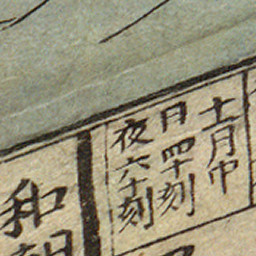 十一月中
日四十刻
夜六十刻
和朝